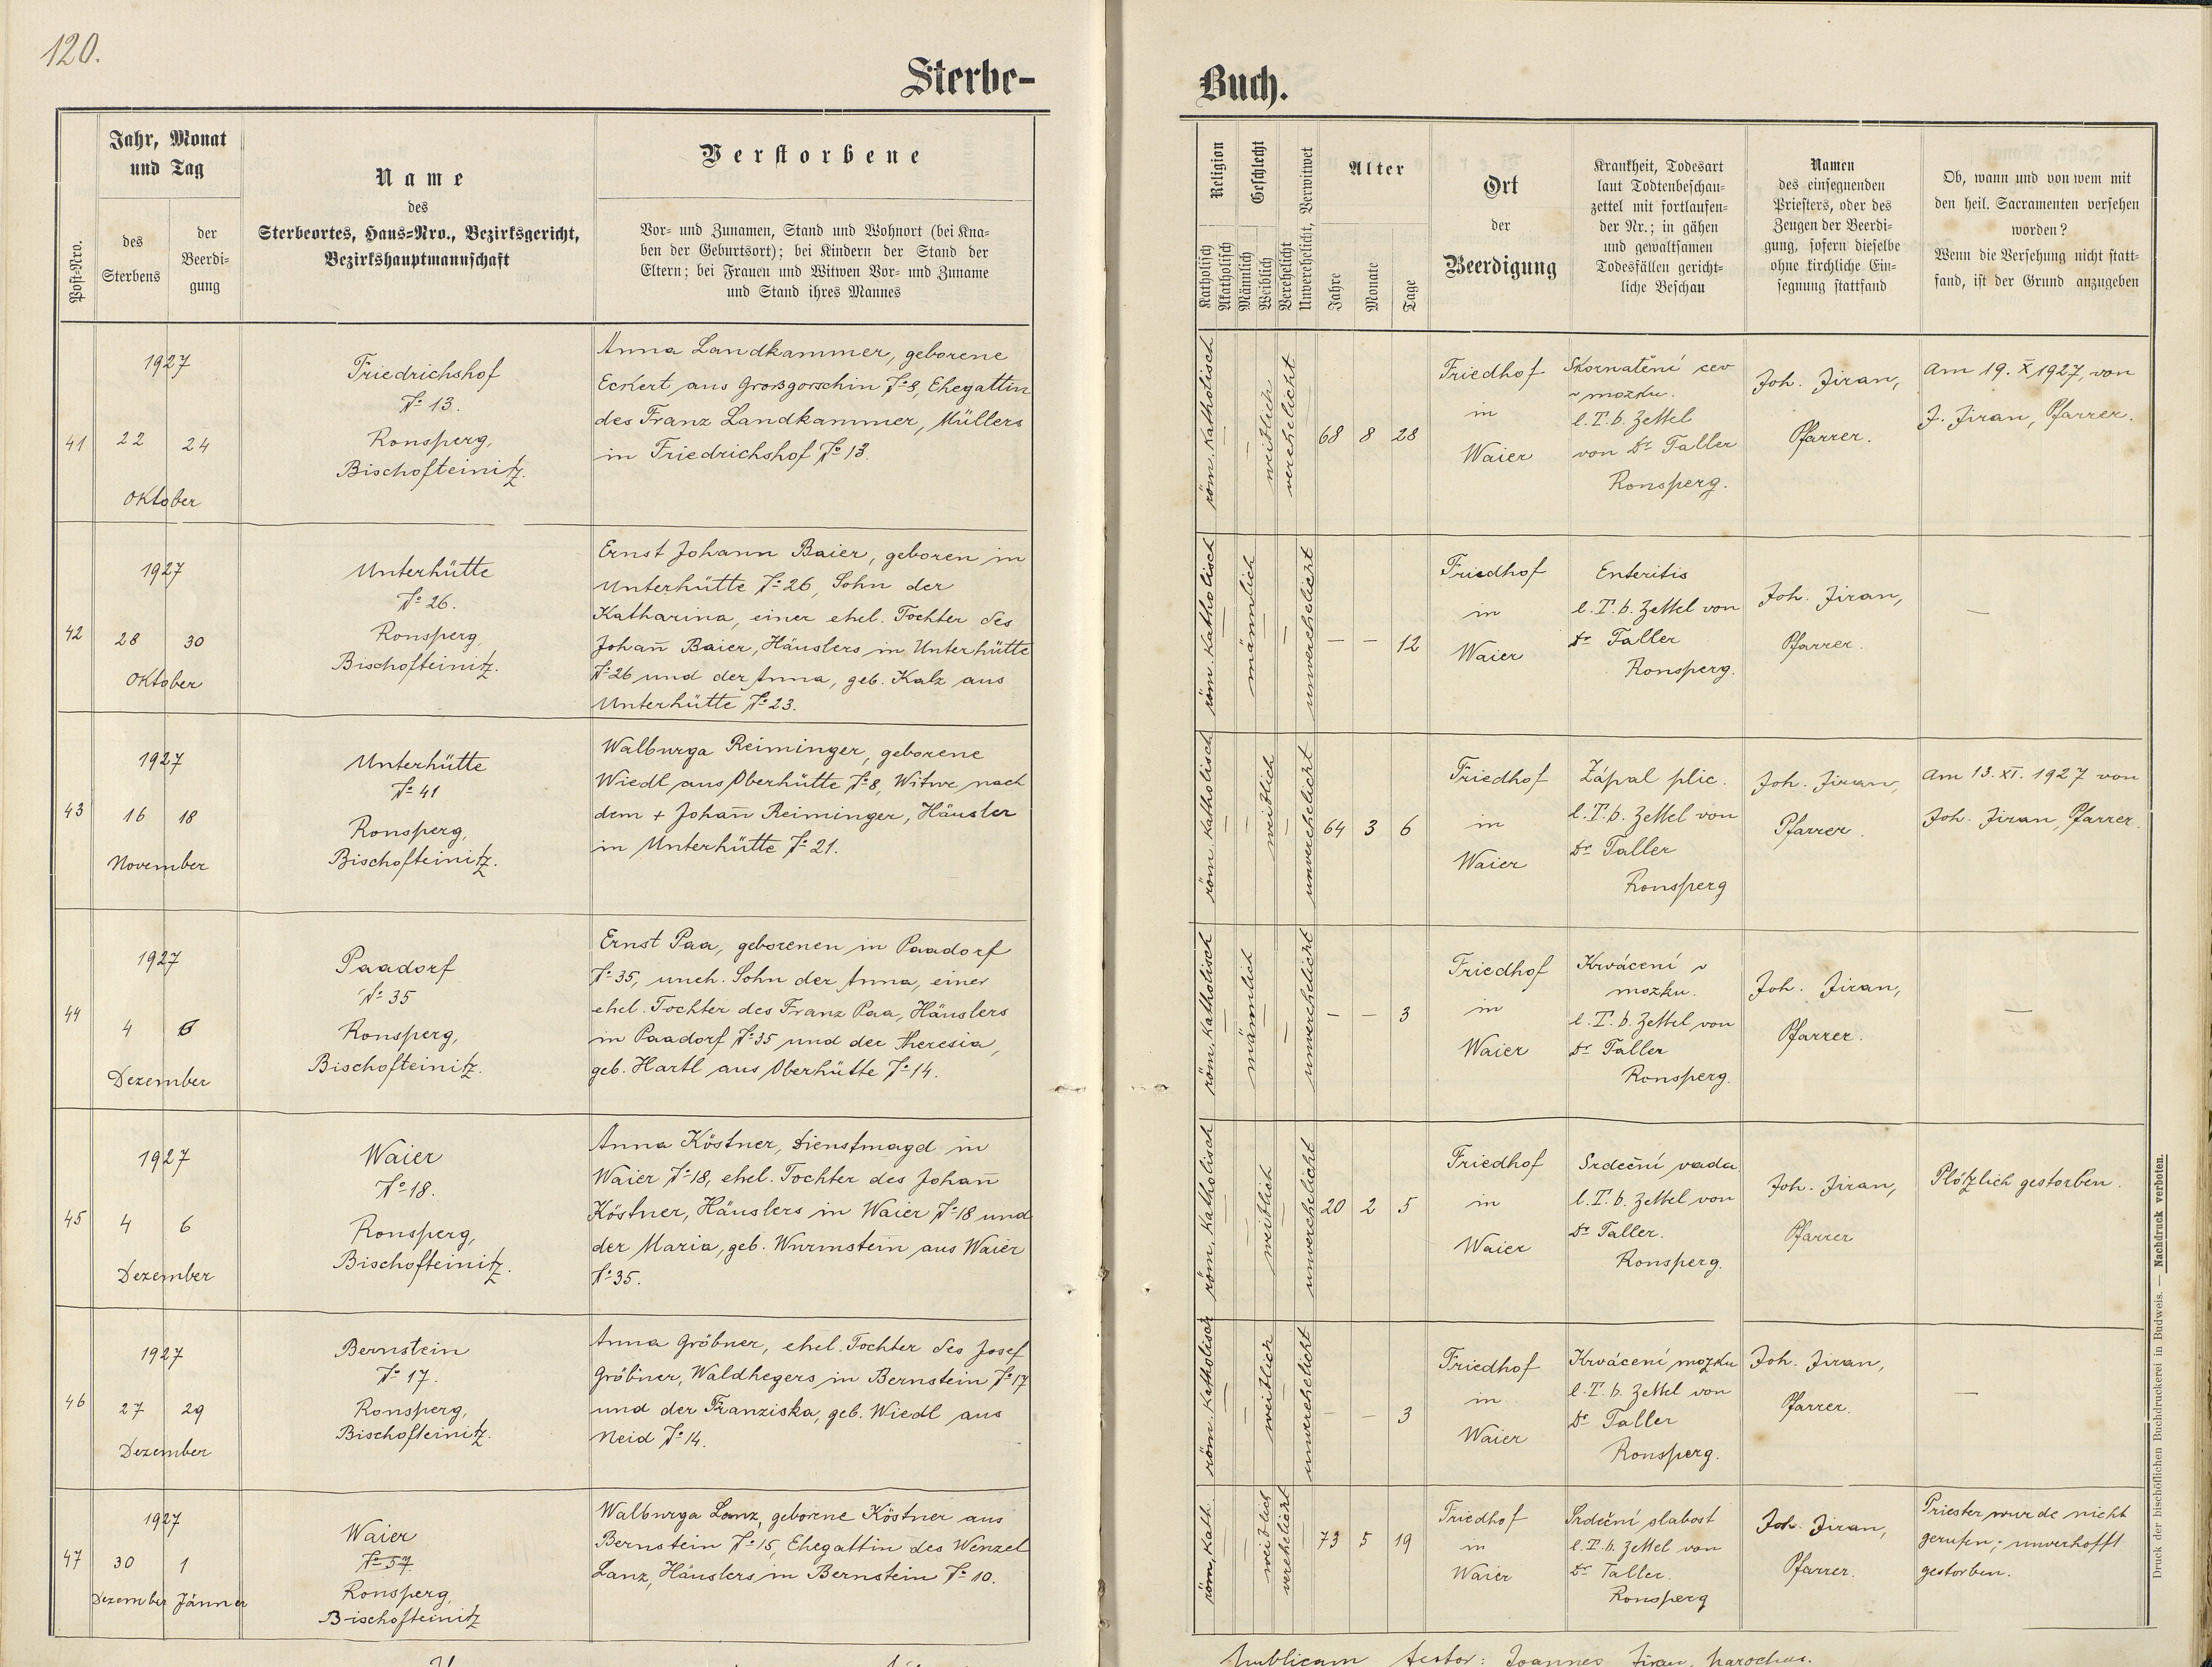 120.
Sterbe-
Buch.
Post-Nro.
Jahr, Monat
und Tag
des
Sterbens
der
Beerdi-
gung
Name
des
Sterbeortes, Haus-Nro., Bezirksgericht,
Bezirkshauptmannschaft
Verstorbene
Vor- und Zunamen, Stand und Wohnort (bei Kna-
ben der Geburtsort); bei Kindern der Stand der
Eltern; bei Frauen und Witwen Vor- und Zuname
und Stand ihres Mannes
Religion
Katholisch
Akatholisch
Geschlecht
Männlich
Weiblich
Verehelicht
Unverehelicht, Verwitwet
Alter
Jahre
Monate
Tage
Ort
der
Beerdigung
Krankheit, Todesart
laut Todtenbeschau-
zettel mit fortlaufen-
der Nr.; in gähen
und gewaltsamen
Todesfällen gericht-
liche Beschau
Namen
des einsegnenden
Priesters, oder des
Zeugen der Beerdi-
gung, sofern dieselbe
ohne kirchliche Ein-
segnung stattfand
Ob, wann und von wem mit
den heil. Sacramenten versehen
worden?
Wenn die Versehung nicht statt-
fand, ist der Grund anzugeben
41
1927
22 24
Oktober
Friedrichshof
No 13.
Ronsperg,
Bischofteinitz.
Anna Landkammer, geborene
Eckert aus Grossgorschin No 8, Ehegattin
des Franz Landkammer, Müllers
in Friedrichshof No 13.
röm. katholisch
—
—
weiblich
verehelicht
68 8 28
Friedhof
in
Waier
Skornatění cev
v mozku.
l. T. b. Zettel
von Dr Taller
Ronsperg.
Joh. Jiran,
Pfarrer.
Am 19. X 1927, von
J. Jiran, Pfarrer.
42
1927
28 30
Oktober
Unterhütte
No 26.
Ronsperg,
Bischofteinitz.
Ernst Johann Baier, geboren in
Unterhütte No 26, Sohn der
Katharina, einer ehel. Tochter des
Johan̄ Baier, Häuslers in Unterhütte
No 26 und der Anna, geb. Kalz aus
Unterhütte No 23.
röm. katholisch
—
männlich
—
—
unverehelicht
— — 12
Friedhof
in
Waier
Enteritis
l. T. b. Zettel von
Dr Taller
Ronsperg.
Joh. Jiran,
Pfarrer.
—
43
1927
16 18
November
Unterhütte
No 41
Ronsperg,
Bischofteinitz.
Walburga Reiminger, geborene
Wiedl aus Oberhütte No 8, Witwe nach
dem + Johan̄ Reiminger, Häusler
in Unterhütte No 21.
röm. katholisch
—
—
weiblich
—
unverehelicht
64 3 6
Friedhof
in
Waier
Zápal plic.
l. T. b. Zettel von
Dr Taller
Ronsperg
Joh. Jiran,
Pfarrer.
Am 13. XI. 1927 von
Joh. Jiran, Pfarrer.
44
1927
4 6
Dezember
Paadorf
No 35
Ronsperg,
Bischofteinitz.
Ernst Paa, geborenen in Paadorf
No 35, uneh. Sohn der Anna, einer
ehel. Tochter des Franz Paa, Häuslers
in Paadorf No 35 und der Theresia,
geb. Hartl aus Oberhütte No 14.
röm. katholisch
—
männlich
—
—
unverehelicht
— — 3
Friedhof
in
Waier
Krvácení v
mozku.
l. T. b. Zettel von
Dr Taller
Ronsperg.
Joh. Jiran,
Pfarrer.
—
45
1927
4 6
Dezember
Waier
No 18.
Ronsperg,
Bischofteinitz.
Anna Köstner, Dienstmagd in
Waier No 18, ehel. Tochter des Johan̄
Köstner, Häuslers in Waier No 18 und
der Maria, geb. Wurmstein aus Waier
No 35.
röm. katholisch
—
—
weiblich
—
unverehelicht
20 2 5
Friedhof
in
Waier
Srdeční vada
l. T. b. Zettel von
Dr Taller.
Ronsperg.
Joh. Jiran,
Pfarrer
Plötzlich gestorben.
46
1927
27 29
Dezember
Bernstein
No 17.
Ronsperg,
Bischofteinitz.
Anna Gröbner, ehel. Tochter des Josef
Gröbner, Waldhegers in Bernstein No 17
und der Franziska, geb. Wiedl aus
Neid No 14.
röm. katholisch
—
—
weiblich
—
unverehelicht
— — 3
Friedhof
in
Waier
Krvácení mozku
l. T. b. Zettel von
Dr Taller
Ronsperg.
Joh. Jiran,
Pfarrer.
—
47
1927
30 1
Dezember Jänner
Waier
No 57
Ronsperg,
Bischofteinitz
Walburga Lanz, geborene Köstner aus
Bernstein No 15, Ehegattin des Wenzel
Lanz, Häuslers in Bernstein No 10.
röm. kath.
—
—
weiblich
verehelicht
—
73 5 19
Friedhof
in
Waier
Srdeční slabost
l. T. b. Zettel von
Dr Taller.
Ronsperg
Joh. Jiran,
Pfarrer.
Priester wurde nicht
gerufen; unverhofft
gestorben.
publicam testor: Joannes Jiran, parochus.
Druck der bischöflichen Buchdruckerei in Budweis. — Nachdruck verboten.